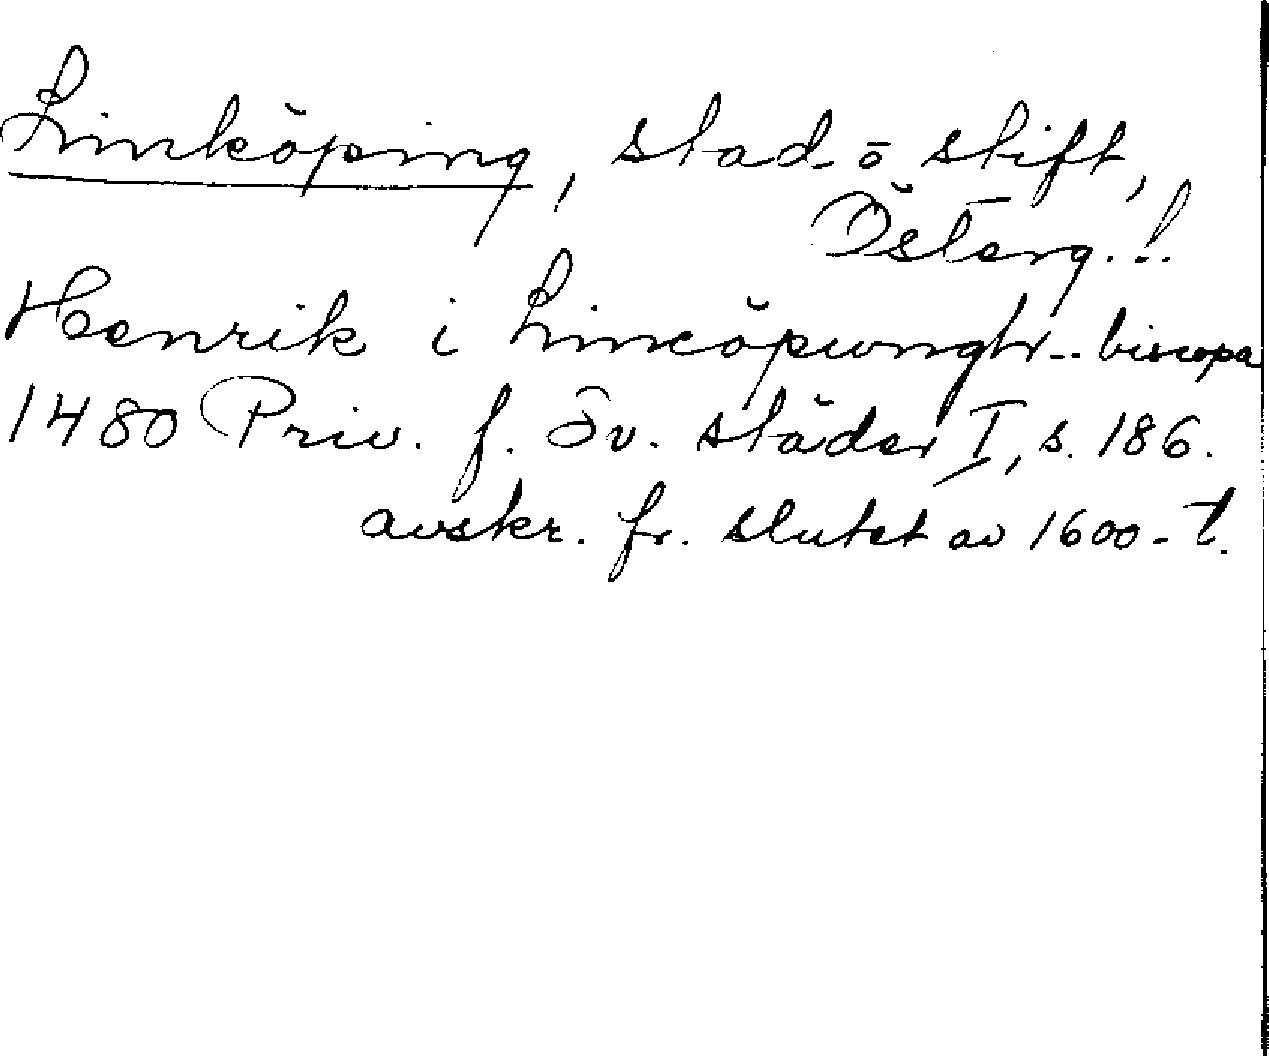 Linköping, stad o stift,
Österg. l.
Henrik i Lincöpungh -- biscopa
1480 Priv. f. Sv. städer I, s. 186.
avskr. fr. slutet av 1600-t.